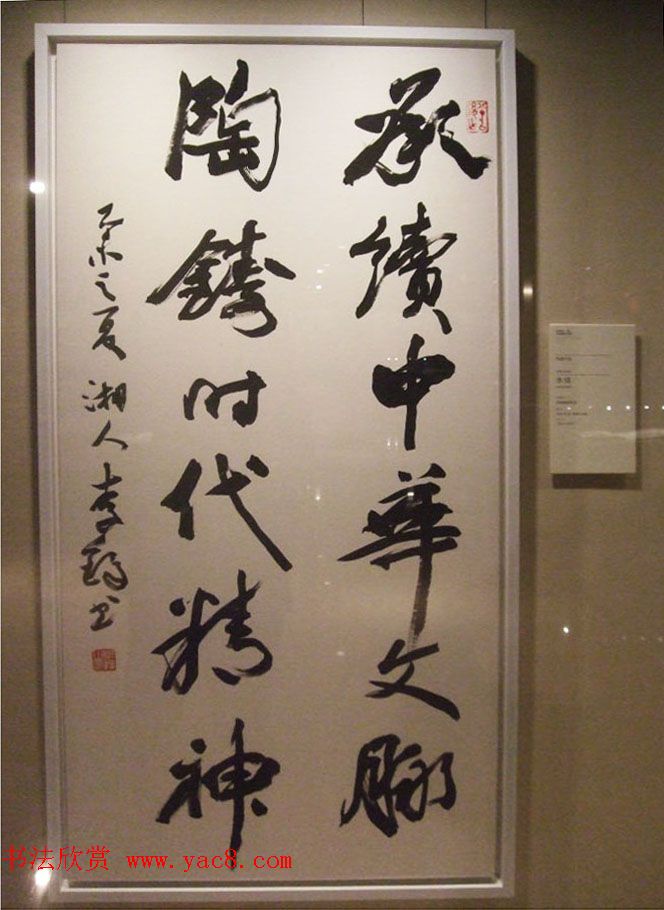 承續中華文脈
陶鑄时代精神
之夏 湘人李鐸书
书法欣赏 www.yac8.com